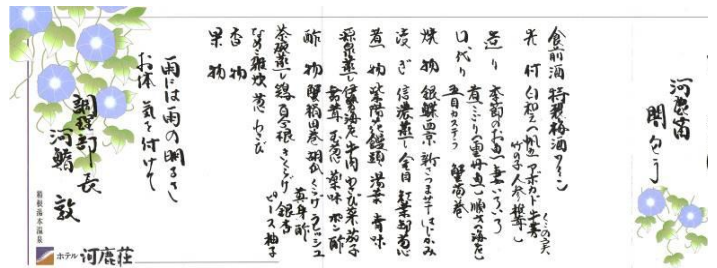 河鹿笛
闇匂う
食前酒 特製梅酒(ワイン)
先付 白和え(帆立 アボカド 牛蒡
くこの実
竹の子 人参 椎茸)
造り 季節のお造り 妻いろいろ
煮こごり(雲丹 魚) 順才 海老
口代り
五目カステラ 蟹菊巻
焼物 銀鱈西京 新さつま芋 はじかみ
凌ぎ 信濃蒸し 金目 紅葉卸 葱
煮物 紫陽花饅頭 湯葉 青味
源泉蒸し 伊勢海老 牛肉 わらび菜 茄子
お葱 薬味 ポン酢
酢物 蟹蛇籠巻 胡瓜 くらげ ラレッシュ
黄身酢
茶碗蒸し 鶏 百合根 きくらげ 銀杏
ピース 柚子
なめこ雑炊 葱 わさび
香物
果物
雨には雨の明るさ
お体 気を付けて
調理部長
河鰭 敦
箱根湯本温泉
ホテル 河鹿荘